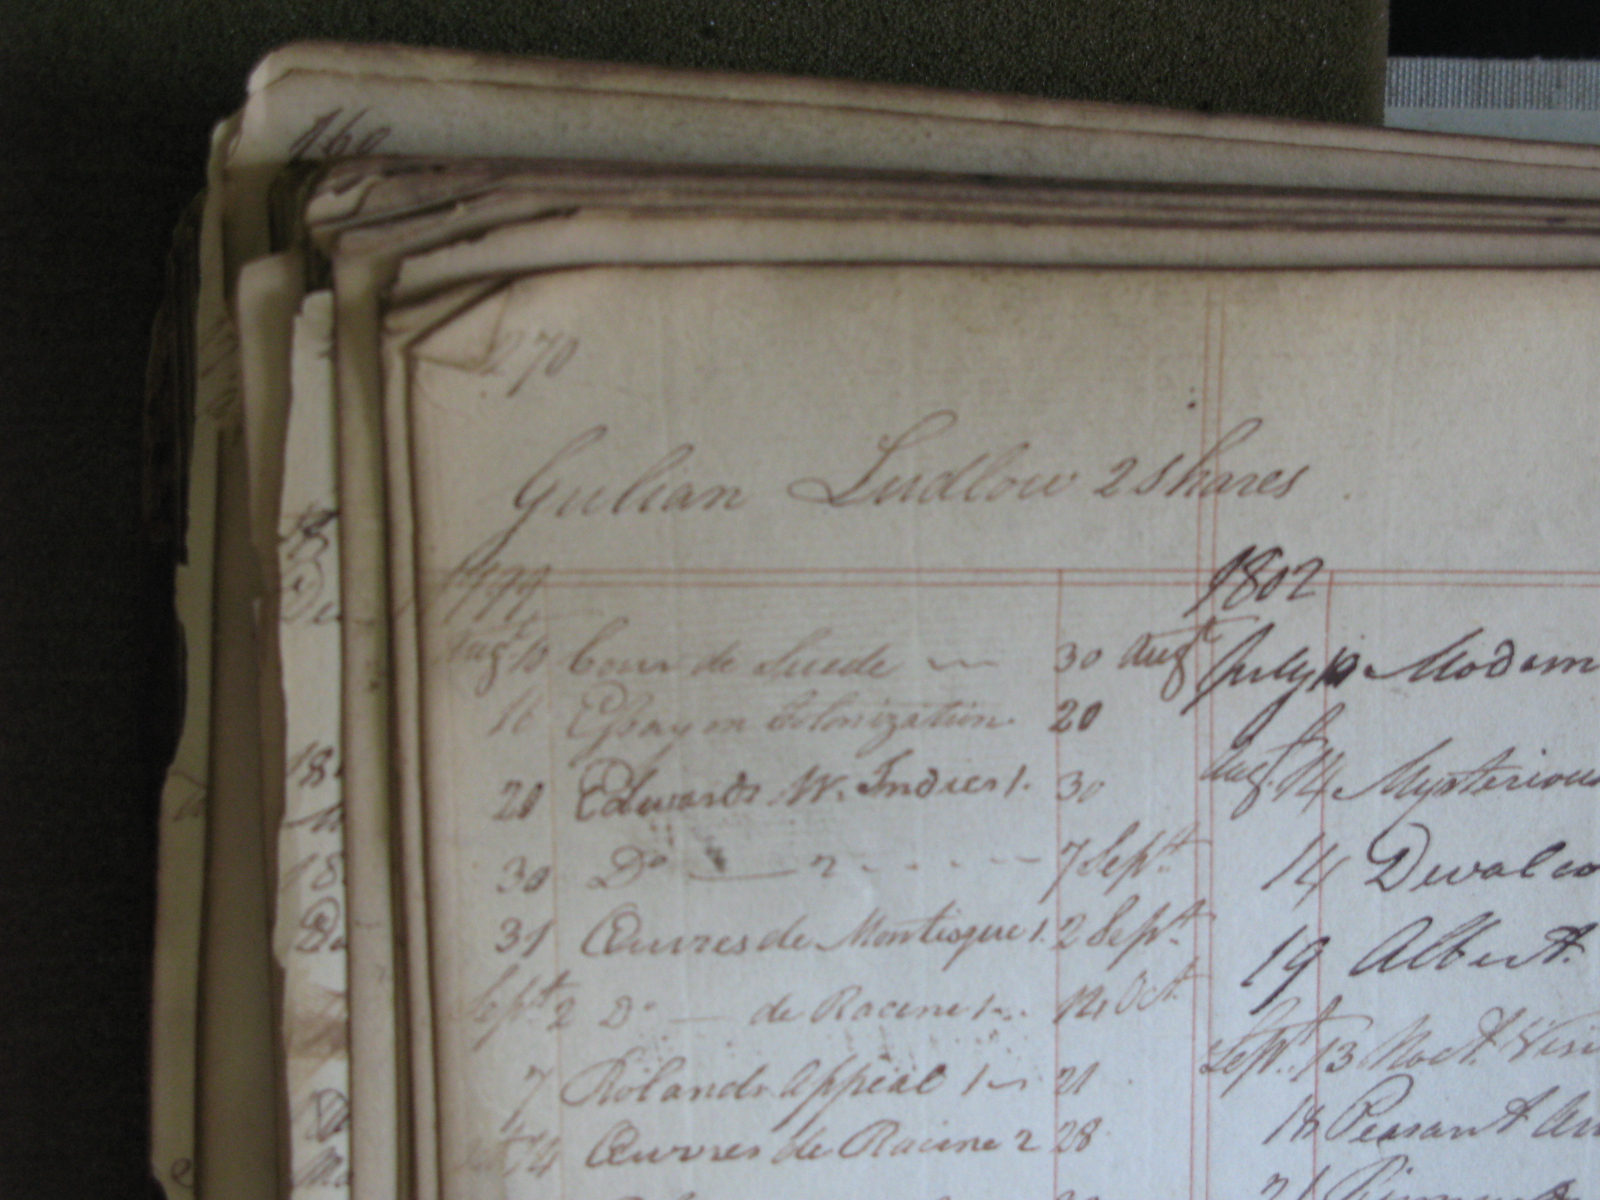 160
270
Gulian Ludlow 2 Shares
1799
Augt 10 Cour de Suede 30 Augt
16 Essay on Colonization 20
20 Edwards W. Indies 1. 30
30 Do — 2 7 Sept
31 Œuvres de Montisque 1. 2 Sept
Sept 2 Do — de Racine 1 Oct
7 Rolands Appeal 1 21
Œuvres de Racine 2 28
1802
July 19 Modern
Augt 14 Mysterious
14
19 Albert.
Sept. 13 Noct. Visi
18 Peasant